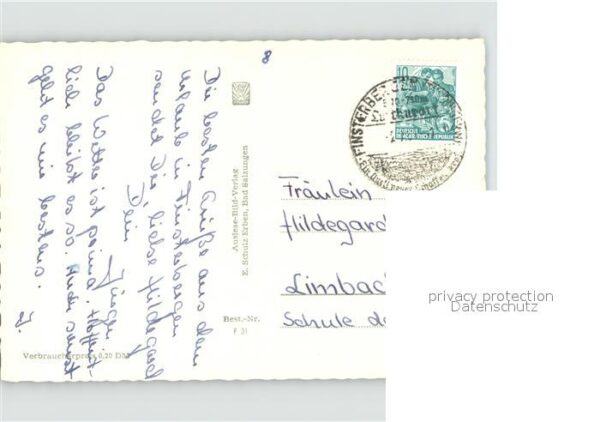 Die besten Grüße aus dem
Urlaub in Finsterbergen
sendet Dir, liebe Hildegard
Dein Jürgen
Das Wetter ist prima. Hoffent-
lich bleibt es so. Auch sonst
geht es mir bestens.
J.
8
Auslese-Bild-Verlag
E. Schulz Erben, Bad Salzungen
Best.-Nr.
F 31
Verbraucherpreis 0,20 DM
10
DEUTSCHE
DEMOKRATISCHE REPUBLIK
FINSTERBERGEN
Fräulein
Hildegard
Limbach
Schule
privacy protection
Datenschutz